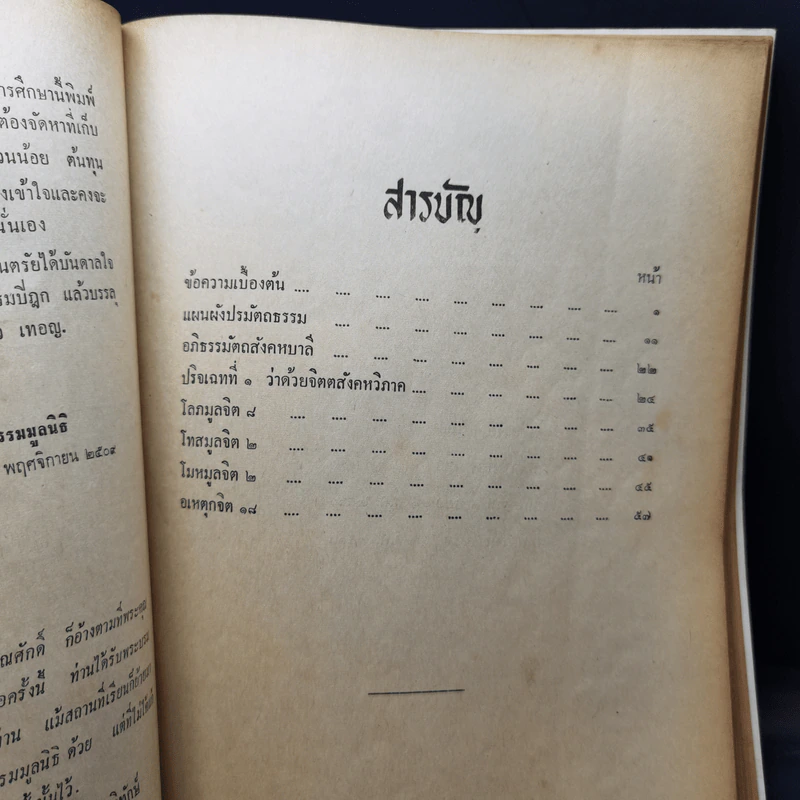 ารศึกษานี้พิมพ์
ต้องจัดหาที่เก็บ
วนน้อย ต้นทุน
งเข้าใจและคงจะ
นั่นเอง
นตรัยได้บันดาลใจ
รมปิฎก แล้วบรรลุ
เทอญ.
รรมมูลนิธิ
พฤศจิกายน ๒๕๐๙
ณศักดิ์ ก็อ้างตามที่พระคุณ
อครั้งนี้ ท่านได้รับพระบรม
ท่าน แม้สถานที่เรียนก็ย้ายมา
รรมมูลนิธิ ด้วย แต่ที่ไม่ใช้
นั้นไว้.
สารบัญ
หน้า
ข้อความเบื้องต้น .... .... .... .... .... .... .... .... .... ๑
แผนผังปรมัตถธรรม .... .... .... .... .... .... .... .... ๑๑
อภิธรรมัตถสังคหบาลี .... .... .... .... .... .... .... .... ๒๒
ปริจเฉทที่ ๑ ว่าด้วยจิตตสังคหวิภาค .... .... .... .... .... .... ๒๔
โลภมูลจิต ๘ .... .... .... .... .... .... .... .... .... ๓๕
โทสมูลจิต ๒ .... .... .... .... .... .... .... .... .... ๔๑
โมหมูลจิต ๒ .... .... .... .... .... .... .... .... .... ๔๕
อเหตุกจิต ๑๘ .... .... .... .... .... .... .... .... .... ๕๗